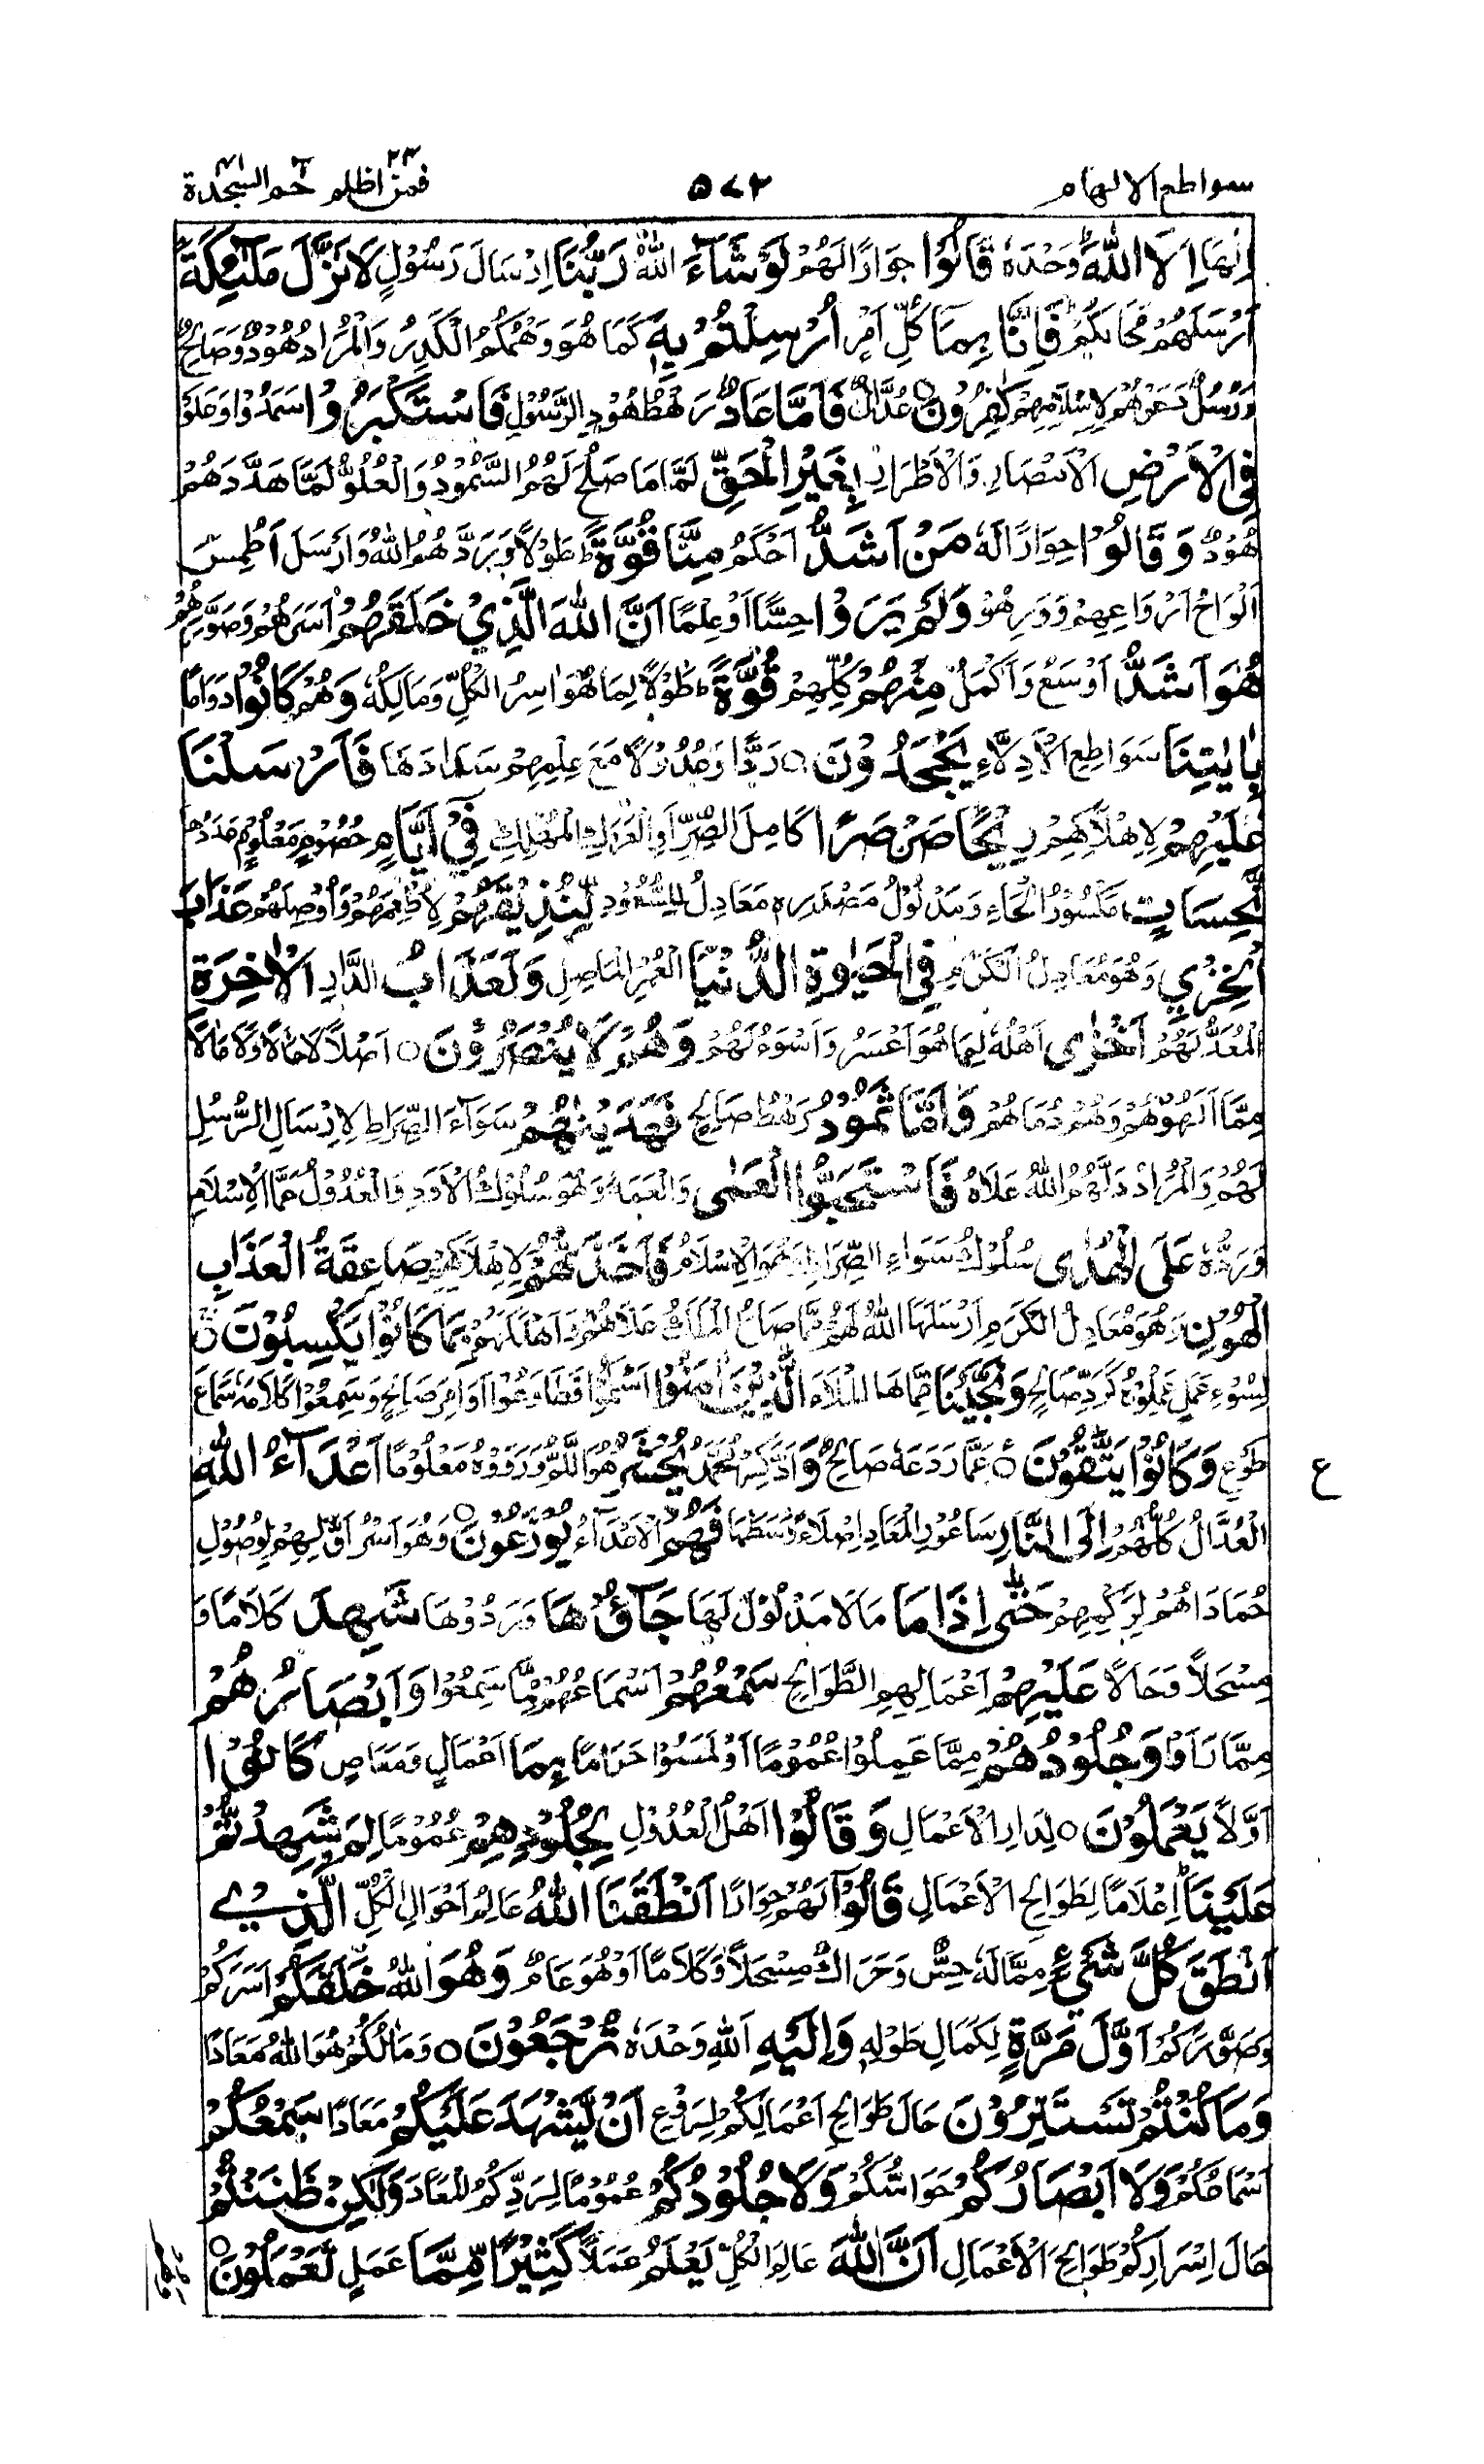 سواطع الالهام ٥٧٢ فمن اظلم ٢٤ حم السجدة ٤١
اِنَّهَا اِلَّا اللهَ وَحْدَهٗ قَالُوْا حِوَارًا لَهُمْ لَوْ شَآءَ اللهُ رَبُّنَا اِرْسَالَ رَسُوْلٍ لَاَنْزَلَ مَلٰٓئِكَةً
اَرْسَلَهُمْ فَاِنَّا بِمَا كُلِّ اَمْرٍ اُرْسِلْتُمْ بِهٖ كَمَا هُوَ وَهْمُكُمُ الْكَدِرُ وَالْمُرَادُ هُوْدٌ وَصَالِحٌ
وَرُسُلٌ دَعَوْهُمْ لِاِسْلَامِهِمْ كٰفِرُوْنَ○ عُدَّالٌ فَاَمَّا عَادٌ رَهْطُ هُوْدِ الرَّسُوْلِ فَاسْتَكْبَرُوْا سَمَدُوْا وَعَلَوْا
فِی الْاَرْضِ الْاَمْصَارِ وَالْاَطْرَارِ بِغَيْرِ الْحَقِّ لَمَّا مَا صَلُحَ لَهُمُ السُّمُوْدُ وَالْعُلُوُّ لَمَّا هَدَّدَهُمْ
هُوْدٌ وَقَالُوْا حِوَارًا لَهٗ مَنْ اَشَدُّ اَحْكَمُ مِنَّا قُوَّةً طَوْلًا وَرَدَّهُمُ اللهُ وَاَرْسَلَ اَطْمِسَ
اَلْوَاحَ اَرْوَاعِهِمْ وَدَوِرِهِمْ وَلَمْ يَرَوْا حِسًّا اَوْ عِلْمًا اَنَّ اللهَ الَّذِيْ خَلَقَهُمْ اَسَرَهُمْ وَصَوَّرَهُمْ
هُوَ اَشَدُّ اَوْسَعُ وَاَكْمَلُ مِنْهُمْ كُلِّهِمْ قُوَّةً طَوْلًا لِمَا هُوَ اٰسِرُ الْكُلِّ وَمَالِكُهٗ وَهُمْ كَانُوْا دَوَامًا
بِاٰيٰتِنَا سَوَاطِعِ الْاَدِلَّاءِ يَجْحَدُوْنَ○ رَدًّا وَعُدُوْلًا مَعَ عِلْمِهِمْ سَدَادَهَا فَاَرْسَلْنَا
عَلَيْهِمْ لِاِهْلَاكِهِمْ رِيْحًا صَرْصَرًا كَامِلَ الصِّرِّ اَوِ الْعَرَكِ الْمُهْلِكِ فِيْٓ اَيَّامٍ حُصُوْمٍ مَعْلُوْمٍ عَدَدُهَا
نَّحِسَاتٍ مَكْسُوْرُ الْحَاءِ وَمَدْلُوْلُ مَصْدَرِهٖ مَعَادِلُ لِلسُّعُوْدِ لِّنُذِيْقَهُمْ لِاُطْعِمَهُمْ وَاُوْصِلَهُمْ عَذَابَ
الْخِزْيِ وَهُوَ مُعَادِلُ الْكَرَمِ فِی الْحَيٰوةِ الدُّنْيَا الْعُمْرِ الْمَاصِلِ وَلَعَذَابُ الدَّارِ الْاٰخِرَةِ
الْمُعَدُّ لَهُمْ اَخْزٰى اَهْلَهٗ لِمَا هُوَ اَعْسَرُ وَاَسْوَءُ لَهُمْ وَهُمْ لَا يُنْصَرُوْنَ○ اَصْلًا لَا حَالًا وَلَا مَالًا
مِمَّا اَلَهُوْهُمْ وَهُمْ دُمَاهُمْ وَاَمَّا ثَمُوْدُ رَهْطُ صَالِحٍ فَهَدَيْنٰهُمْ سَوَآءَ الصِّرَاطِ لِاِرْسَالِ الرُّسُلِ
لَهُمْ وَالْمُرَادُ دَلَّهُمُ اللهُ عَلَاهُ فَاسْتَحَبُّوا الْعَمٰى وَالْعَمَهَ وَهُوَ سُلُوْكُ الْاَوَدِ وَالْعُدُوْلُ عَمَّا الْاِسْلَامِ
وَرَدُّهٗ عَلَى الْهُدٰى سُلُوْكِ سَوَاءِ الصِّرَاطِ وَهُوَ الْاِسْلَامُ فَاَخَذَتْهُمْ لِاِهْلَاكِهِمْ صَاعِقَةُ الْعَذَابِ
الْهُوْنِ وَهُوَ مُعَادِلُ الْكَرَمِ اَرْسَلَهَا اللهُ لَهُمْ لَمَّا صَاحَ الْمَلَكُ عَلَاهُمْ وَاَهْلَكَهُمْ بِمَا كَانُوْا يَكْسِبُوْنَ○
لِسُوْءِ عَمَلٍ عَمِلُوْهُ كَرَدِّ صَالِحٍ وَنَجَّيْنَا مِمَّا هَا الْمَلَاءَ الَّذِيْنَ اٰمَنُوْا اَسْلَمُوْا وَطَاوَعُوْا اَوَامِرَ صَالِحٍ وَسَمِعُوْا كَلَامَهٗ سَمَاعَ
طَوْعٍ وَكَانُوْا يَتَّقُوْنَ○ عَمَّا رَدَعَهٗ صَالِحٌ وَادَّكِرْ مُحَمَّدُ يَوْمَ يُحْشَرُ هُوَ اللَّمُّ وَرَوَوْهُ مَعْلُوْمًا اَعْدَآءُ اللهِ
الْعُدَّالُ كُلُّهُمْ اِلَى النَّارِ سَاعُوْرِ الْمَعَادِ اِصْلَاءً وَسَطَهَا فَهُمْ الْاَعْدَآءُ يُوْزَعُوْنَ○ وَهُوَ اَسْرُ اَوَّلِهِمْ لِوُصُوْلِ
حُمَادَاهُمْ لِرَكْمِهِمْ حَتّٰى اِذَا مَا مَا لَا مَدْلُوْلَ لَهَا جَآءُوْهَا وَرَدُوْهَا شَهِدَ كَلَامًا وَ
مِسْحَلًا وَحَالًا عَلَيْهِمْ اَعْمَالِهِمِ الطَّوَالِحِ سَمْعُهُمْ اَسْمَاعُهُمْ مِمَّا سَمِعُوْا وَاَبْصَارُهُمْ
مِمَّا رَاَوْا وَجُلُوْدُهُمْ مِمَّا عَمِلُوْا عُمُوْمًا اَوْ لَمَسُوْا حَرَامًا بِمَا اَعْمَالٍ وَمَعَاصٍ كَانُوْا
اَوَّلًا يَعْمَلُوْنَ○ لِدَارِ الْاَعْمَالِ وَقَالُوْا اَهْلُ الْعُدُوْلِ لِجُلُوْدِهِمْ عُمُوْمًا لِمَ شَهِدْتُّمْ
عَلَيْنَا اِعْلَامًا لِطَوَالِحِ الْاَعْمَالِ قَالُوْا لَهُمْ حِوَارًا اَنْطَقَنَا اللهُ عَالِمُ اَحْوَالِ الْكُلِّ الَّذِيْ
اَنْطَقَ كُلَّ شَيْءٍ مِمَّا لَهٗ حِسٌّ وَحَرَاكٌ مِسْحَلًا وَكَلَامًا اَوْ هُوَ عَامٌّ وَهُوَ اللهُ خَلَقَكُمْ اَسَرَكُمْ
وَصَوَّرَكُمْ اَوَّلَ مَرَّةٍ لِكَمَالِ طَوْلِهٖ وَاِلَيْهِ اللهِ وَحْدَهٗ تُرْجَعُوْنَ○ وَمَالُكُمْ هُوَ اللهُ مَعَادًا
وَمَا كُنْتُمْ تَسْتَتِرُوْنَ حَالَ طَوَالِحِ اَعْمَالِكُمْ لِرَوْعِ اَنْ يَّشْهَدَ عَلَيْكُمْ مَعَادًا سَمْعُكُمْ
اَسْمَاعُكُمْ وَلَا اَبْصَارُكُمْ حَوَاسُّكُمْ وَلَا جُلُوْدُكُمْ عُمُوْمًا لِرَدِّكُمُ الْمَعَادَ وَلٰكِنْ ظَنَنْتُمْ
حَالَ اِسْرَارِكُمْ طَوَالِحَ الْاَعْمَالِ اَنَّ اللهَ عَالِمَ الْكُلِّ لَا يَعْلَمُ عَمَلًا كَثِيْرًا مِّمَّا عَمَلٍ تَعْمَلُوْنَ○
ع